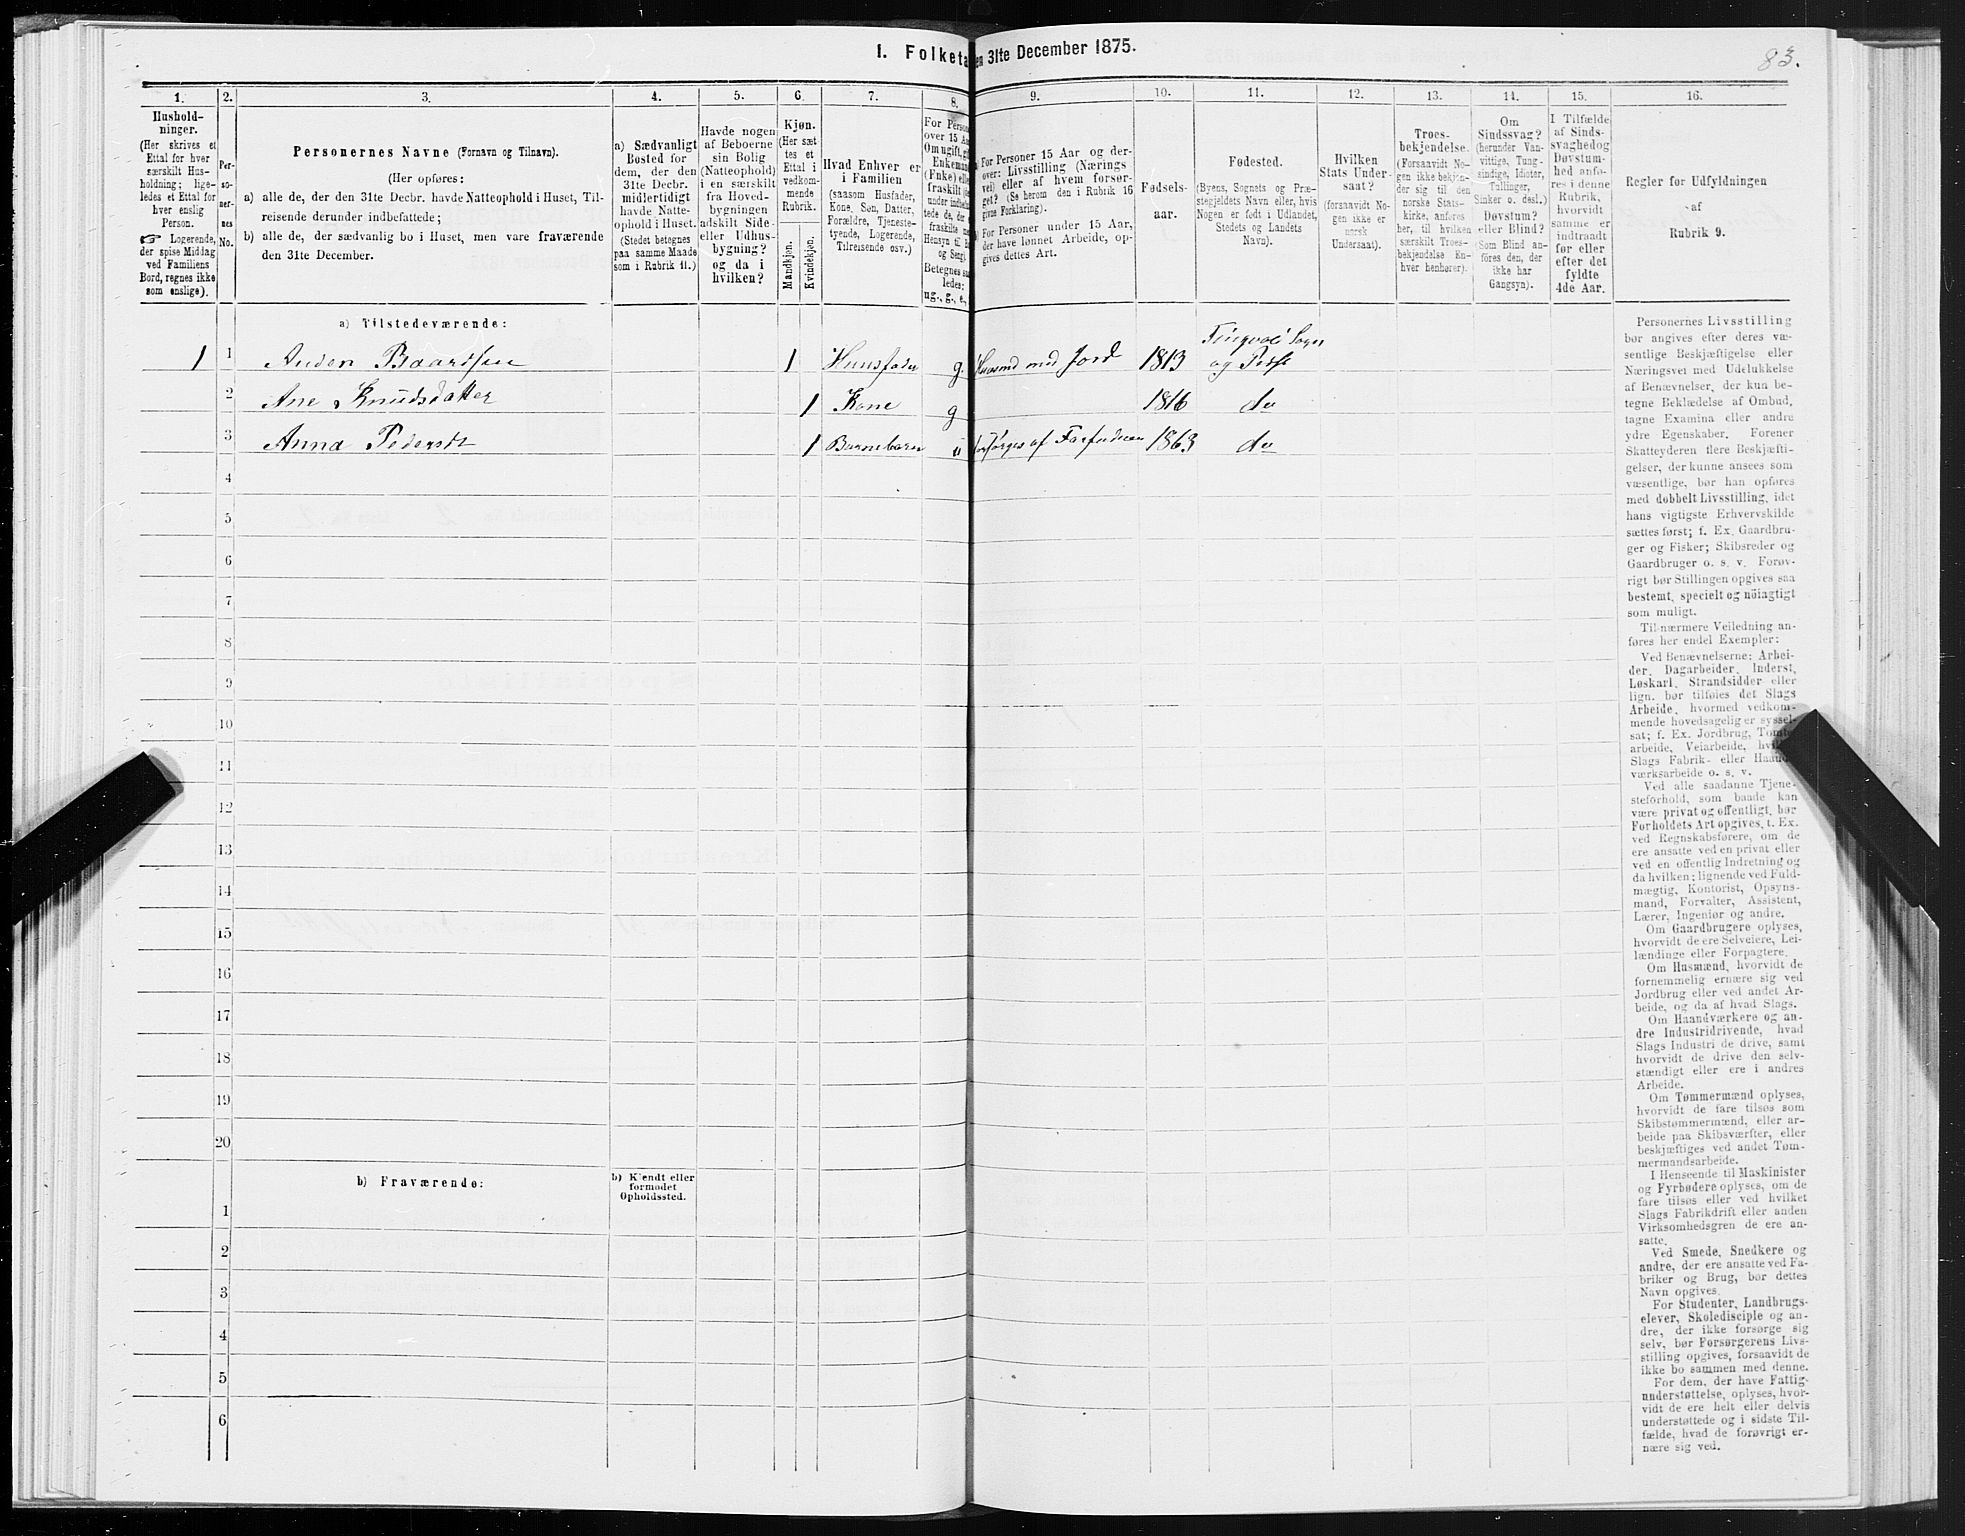 1. Folketa
en 31te December 1875.
83.
1.
2.
3.
4.
5.
6.
7.
8.
9.
10.
11.
12.
13.
14.
15.
16.
Hushold-
ninger.
(Her skrives et
Ettal for hver
særskilt Hus-
holdning; lige-
ledes et Ettal for
hver enslig
Person.
☞ Logerende,
der spise Middag
ved Familiens
Bord, regnes ikke
som enslige).
Per-
so-
ner-
nes
No.
Personernes Navne (Fornavn og Tilnavn).
(Her opføres:
a) alle de, der den 31te Decbr. havde Natteophold i Huset, Til-
reisende derunder indbefattede;
b) alle de, der sædvanlig bo i Huset, men vare fraværende
den 31te December.
a) Sædvanligt
Bosted for
dem, der den
31te Decbr.
midlertidigt
havde Natte-
ophold i Huset.
(Stedet betegnes
paa samme Maade
som i Rubrik 11.)
Havde nogen
af Beboerne
sin Bolig
(Natteophold)
i en særskilt
fra Hoved-
bygningen
adskilt Side-
eller Udhus-
bygning?
og da i
hvilken?
Kjøn.
(Her sæt
tes et
Ettal i
vedkom-
mende
Rubrik.
Mandkjøn.
Kvindekjøn.
Hvad Enhver er
i Familien
(saasom Husfader,
Kone, Søn, Datter,
Forældre, Tjeneste-
tyende, Logerende,
Tilreisende osv.)
For Person
over 15 Aar
Om ugift, gift
Enkemand
(Enke) eller
fraskilt
ug., g., e.,
a) For Personer 15 Aar og der-
over: Livsstilling (Nærings-
vei) eller af hvem forsør-
get? (Se herom den i Rubrik 16
givne Forklaring).
b) For Personer under 15 Aar,
der have lønnet Arbeide, op-
gives dettes Art.
Fødsels-
aar.
Fødested.
(Byens, Sognets og Præ-
stegjeldets Navn eller, hvis
Nogen er født i Udlandet,
Stedets og Landets
Navn).
Hvilken
Stats Under-
saat?
(forsaavidt No-
gen ikke er
norsk
Undersaat).
Troes-
bekjendelse.
(Forsaavidt No-
gen ikke bekjen-
der sig til den
norske Stats-
kirke, anføres
her, til hvilken
særskilt Troes-
bekjendelse En-
hver henhører).
Om
Sindssvag?
(herunder Van-
vittige, Tung-
sindige, Idioter,
Tullinger,
Sinker o. desl.)
Døvstum?
eller Blind?
(Som Blind an-
føres den, der
ikke har
Gangsyn).
I Tilfælde
af Sinds-
svaghed og
Døvstum-
hed anfø-
res i denne
Rubrik,
hvorvidt
samme er
indtraadt
før eller
efter det
fyldte
4de Aar.
Regler for Udfyldningen
af
Rubrik 9.
a) Tilstedeværende:
1 1 Anders Baardsen 1 Huusfader g. Huusmd med Jord 1813 Tingvol Sogn
og Pdsf
2 Ane Knudsdatter 1 Kone g 1816 do
3 Anna Pedersdt 1 Barnebarn u forsørges af Farfaderen 1863 do
4
5
6
7
8
9
10
11
12
13
14
15
16
17
18
19
20
b) Fraværende:
b) Kjendt eller
formodet
Opholdssted.
1
2
3
4
5
6
Personernes Livsstilling
bør angives efter deres væ-
sentlige Beskjæftigelse eller
Næringsvei med Udelukkelse
af Benævnelser, der kun be-
tegne Beklædelse af Ombud,
tagne Examina eller andre
ydre Egenskaber. Forener
Skatteyderen flere Beskjæfti-
gelser, der kunne ansees som
væsentlige, bør han opføres
med dobbelt Livsstilling, idet
hans vigtigste Erhvervskilde
sættes først; f. Ex. Gaardbru-
ger og Fisker; Skibsreder og
Gaardbruger o. s. v. Forøv-
rigt bør Stillingen opgives saa
bestemt, specielt og nöiagtigt
som muligt.
Til nærmere Veiledning an-
føres her endel Exempler:
Ved Benævnelserne: Arbei-
der, Dagarbeider, Inderst,
Løskarl, Strandsidder eller
lign. bør tilføies det Slags
Arbeide, hvormed vedkom-
mende hovedsagelig er syssel-
sat; f. Ex. Jordbrug, Tomte-
arbeide, Veiarbeide, hvilket
Slags Fabrik- eller Haand-
værksarbeide o. s. v.
Ved alle saadanne Tjene-
steforhold, som baade kan
være privat og offentligt, bør
Forholdets Art opgives, f. Ex.
ved Regnskabsførere, om de
ere ansatte ved en privat eller
ved en offentlig Indretning og
da hvilken; lignende ved Fuld-
mægtig, Kontorist, Opsyns-
mand, Forvalter, Assistent,
Lærer, Ingeniør og andre.
Om Gaardbrugere oplyses,
hvorvidt de ere Selveiere, Lei-
lændinge eller Forpagtere.
Om Husmænd, hvorvidt de
fornemmelig ernære sig ved
Jordbrug eller ved andet Ar-
beide, og da af hvad Slags.
Om Haandværkere og an-
dre Industridrivende, hvad
Slags Industri de drive, samt
hvorvidt de drive den selv-
stændigt eller ere i andres
Arbeide.
Om Tømmermænd oplyses,
hvorvidt de fare tilsøs som
Skibstømmermænd, eller ar-
beide paa Skibsværfter, eller
beskjæftiges ved andet Tøm-
mermandsarbeide.
I Henseende til Maskinister
og Fyrbødere oplyses, om de
fare tilsøs eller ved hvilket
Slags Fabrikdrift eller anden
Virksomhedsgren de ere an-
satte.
Ved Smede, Snedkere og
andre, der ere ansatte ved Fa-
briker og Brug, bør dettes
Navn opgives.
For Studenter, Landbrugs-
elever, Skoledisciple og an-
dre, der ikke forsørge sig
selv, bør Forsørgerens Livs-
stilling opgives, forsaavidt de
ikke bo sammen med denne.
For dem, der have Fattig-
understøttelse, oplyses, hvor-
vidt de ere helt eller delvis
understøttede og i sidste Til-
fælde, hvad de forøvrigt er-
nære sig ved.